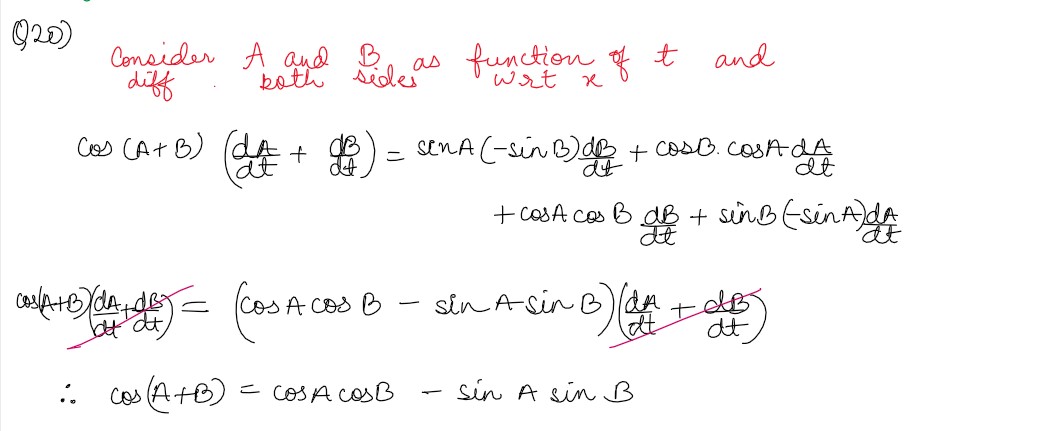 Q20)
Consider A and B as function of t and
diff. both sides wrt x
cos (A+B) (dA/dt + dB/dt) = sinA (-sinB) dB/dt + cosB. cosA dA/dt
+ cosA cos B dB/dt + sinB (-sinA) dA/dt
cos(A+B) (dA/dt + dB/dt) = (cos A cos B - sin A sin B) (dA/dt + dB/dt)
∴ cos(A+B) = cosA cosB - sin A sin B